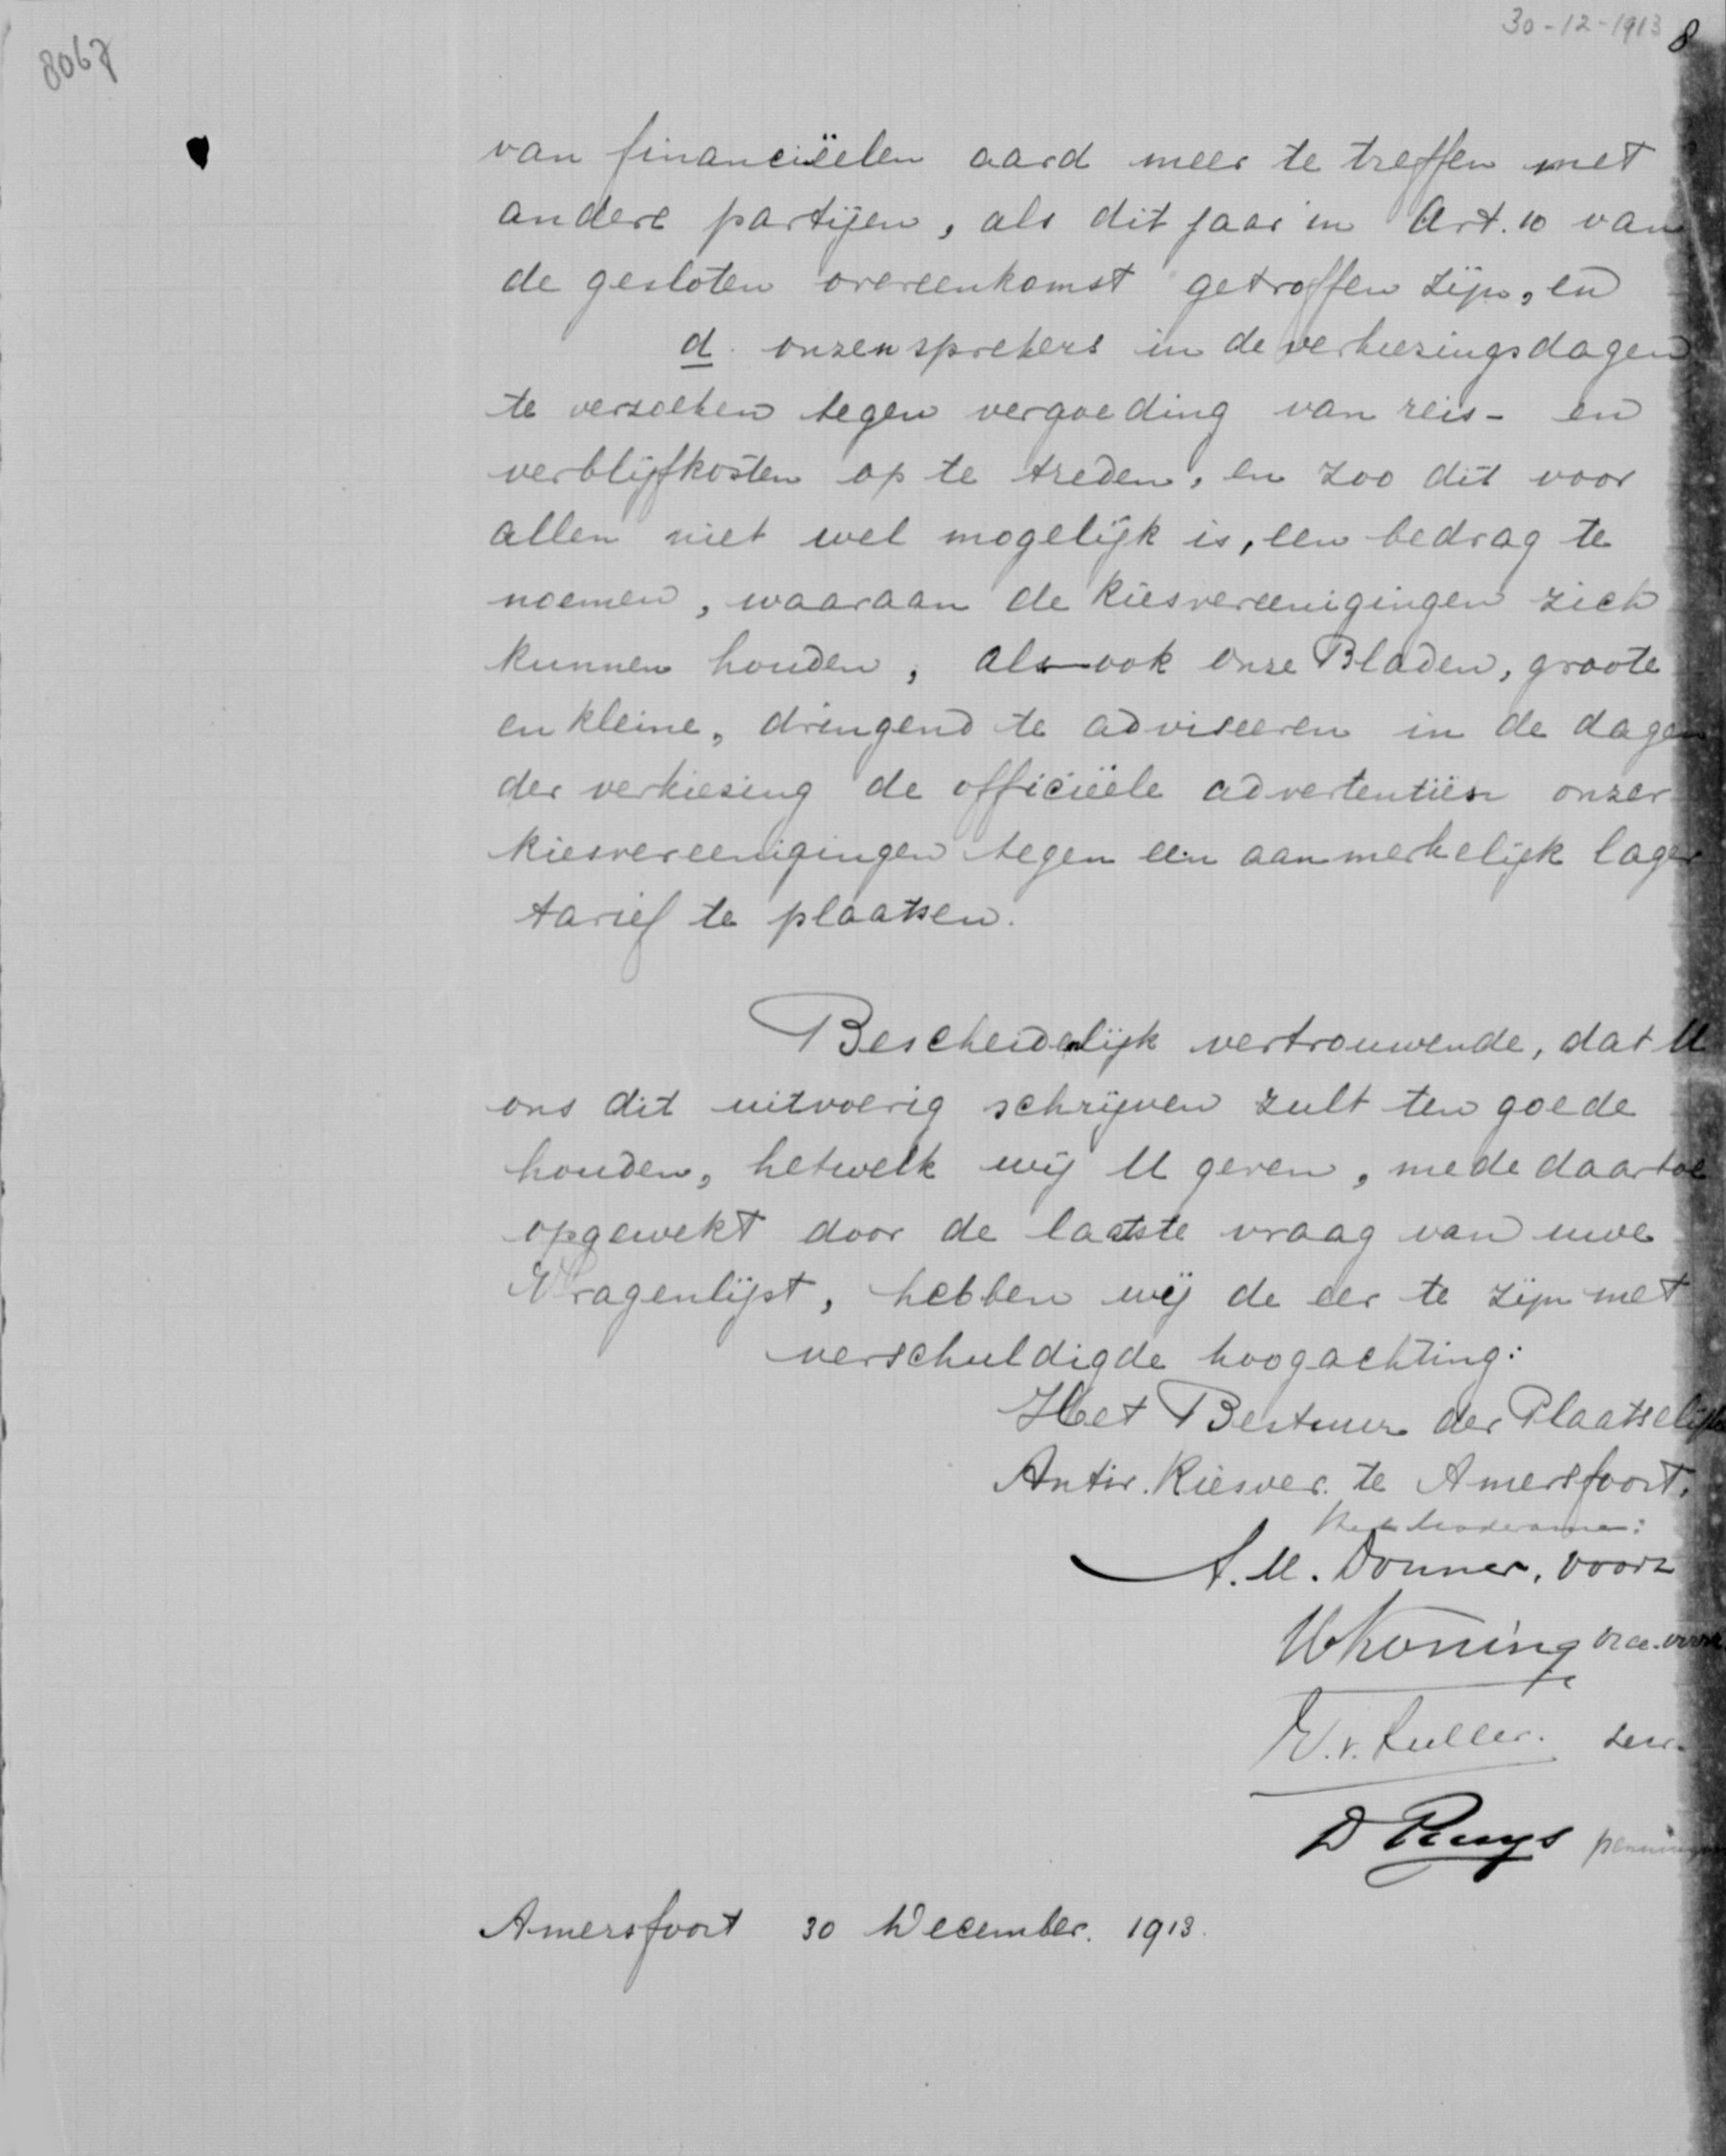 30-12-1913 8
8067
van financiëelen aard meer te treffen met
andere partijen, als dit jaar in Art. 10 van
de gesloten overeenkomst getroffen zijn, en
d. onzen sprekers in de verkiezingsdagen
te verzoeken tegen vergoeding van reis- en
verblijfkosten op te treden, en zoo dit voor
allen niet wel mogelijk is, een bedrag te
noemen, waaraan de kiesvereenigingen zich
kunnen houden, als ook onze Bladen, groote
en kleine, dringend te adviseeren in de dagen
der verkiezing de officiëele advertentiën onzer
kiesvereenigingen tegen een aanmerkelijk lager
tarief te plaatsen.
Bescheidenlijk vertrouwende, dat U
ons dit uitvoerig schrijven zult ten goede
houden, hetwelk wij U geven, mede daartoe
opgewekt door de laatste vraag van uwe
Vragenlijst, hebben wij de eer te zijn met
verschuldigde hoogachting:
Het Bestuur der Plaatselijke
Antir. Kiesver. te Amersfoort.
Het Moderamen:
A. M. Donner, voorz
W Koning
penningm
D Ruys
Amersfoort 30 December. 1913.